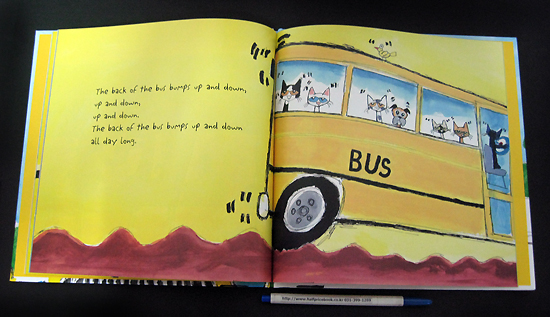 The back of the bus bumps up and down,
up and down,
up and down.
The back of the bus bumps up and down
all day long.
BUS